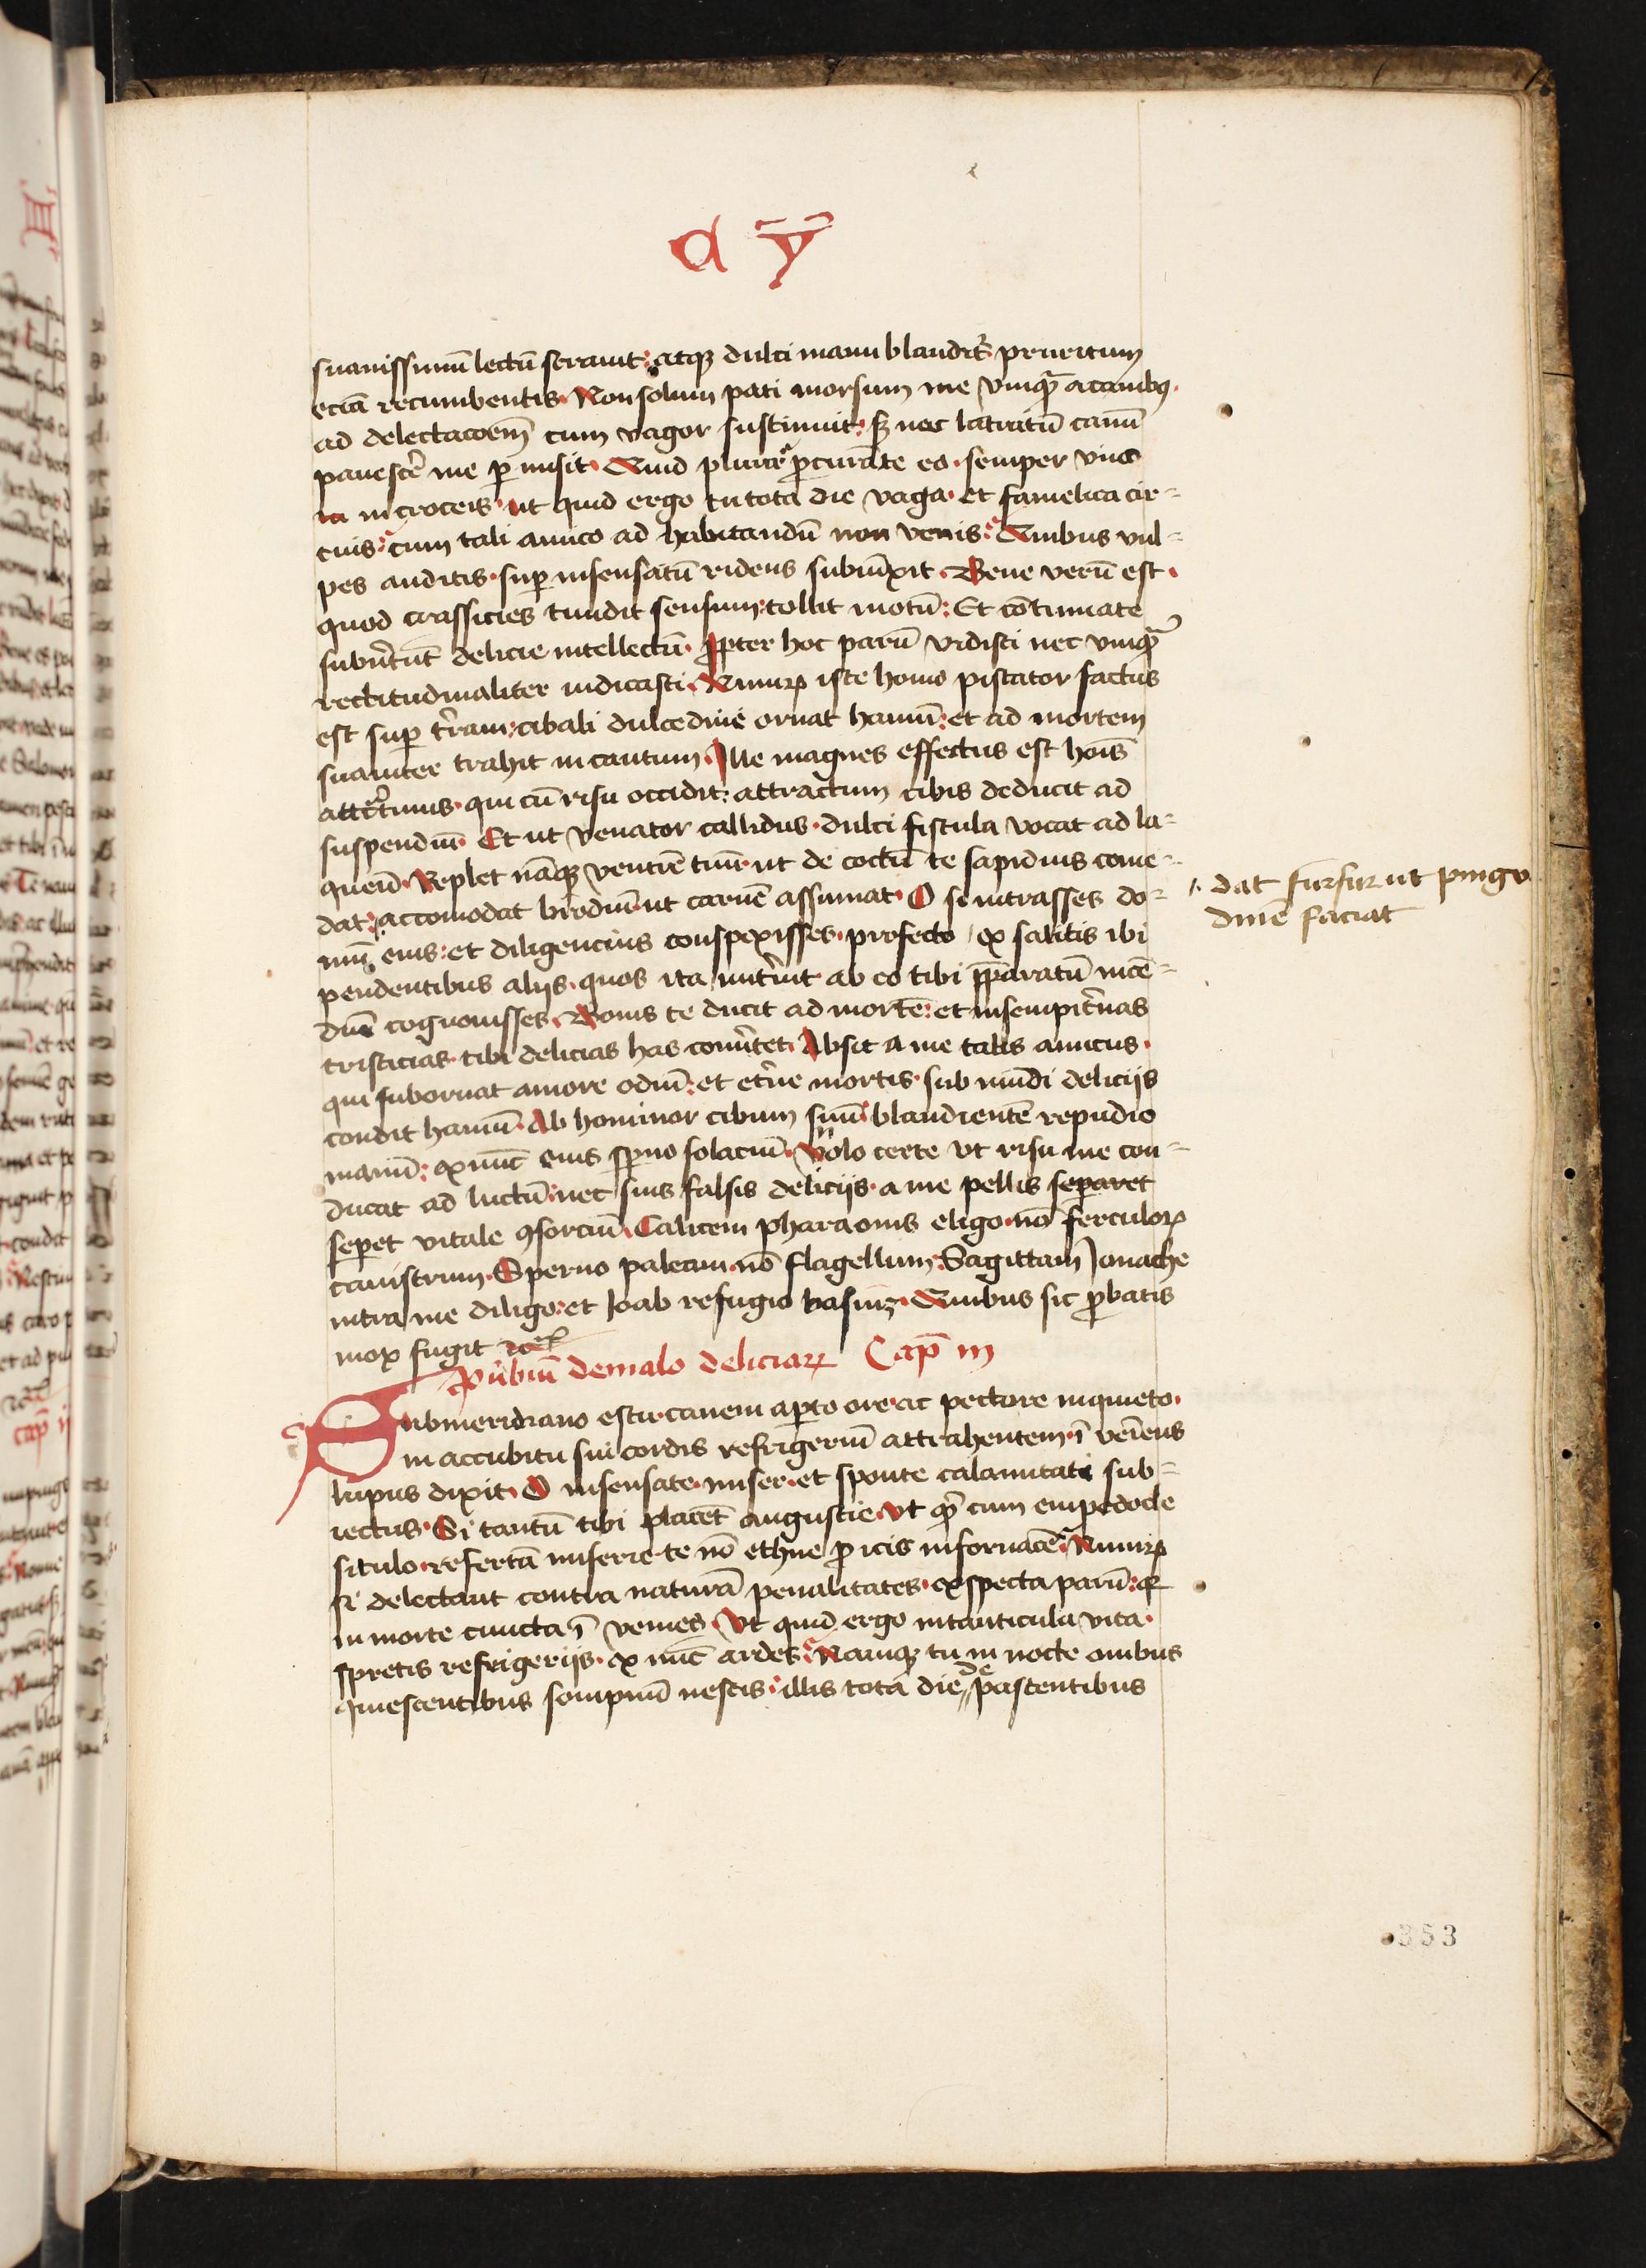 a ȳ
suauissimū lectū strauit: atqꝫ dulci manu blandit᷑ pruritum
eciā recumbentis. Non solum pati morsum me vmqᷓ a canibꝯ.
ad delectacōem̄ cum vagor sustinuit: sꝫ nec latratū canū
pauescē me ꝑmisit. Quid plura? ꝓcurāte eo. semper vixi
in croceis. ut quid ergo tu tota die vaga. et famelica cir=
cuis: cum tali amico ad habitandū non venis? Quibus vul=
pes auditis. suꝑ insensatū ridens subiūxit. Bene verū est.
quod crassicies tundit sensum: tollit motū: Et cōtinuate
subūtūt delicie intellectū. Ꝓpter hoc parū vidisti nec vmqᷓ
rectitudinaliter iudicasti. Nimiꝝ iste homo piscator factus
est suꝑ t̄ram: cibali dulcedine ornat hamū: et ad mortem
suauiter trahit incautum. Ille magnes effectus est hoīs
attētinus. qui cū risu occidit: attractum cibis deducit ad
suspendiū. Et ut venator callidus. dulci fistula vocat ad la=
queū. Replet nāqꝫ ventrē tuū. ut de coctū te sapidius come=
dat: accomodat brodiū. ut carnē assumat. O si intrasses do=
mū eius: et diligencius conspexisses. profecto ex salitis ibi
pendentibus alijs. quos ita nut̄uit. ab eo tibi p̄paratū incē=
diū cognouisses. Bonis te ducit ad mortē: et in sempit̄nas
tristicias. tibi delicias has conūtet. Absit a me talis amicus.
qui subornat amore odiū: et et̄ne mortis. sub mūdi delicijs
condit hamū. Ab hominor cibum suū: blandientē repudio
manū: ex nūc eius sꝑno solaciū. Nolo certe vt risu me con=
ducat ad luctū: nec suis falsis delicijs. a me pellis separet
seꝑet vitale ꝯsorciū. Calicem pharaonis eligo. nō ferculoꝝ
canistrum. Sperno paleam. nō flagellum: Sagittam Jonathe
intra me diligo: et Joab refugio basiuꝫ. Quibus sic ꝓbatis
mox fugit
dat furfur ut pingv
dinē faciat
Ꝓūbiū de malo deliciaꝝ Cap̄ iii
Submeridiano estu. canem aꝑto ore. ac pectore inquieto.
in accubitu sui cordis refrigeriū attrahentem. ī veīens
lupus dixit. O insensate. miser. et sponte calamitati sub=
iectus. Si tantū tibi placēt angustie. vt qr̄ cum empedocle
situlo. refertā miserie te nō ethne ꝓicis in fornacē? Nimiꝝ
si delectant contra naturā penalitates. exspecta parū: qr
in morte cuncta ī venies. Vt quid ergo in tanticula vita.
spretis refrigerijs. ex nūc ardes? Namqꝫ tu in nocte oīnibus
quiescentibus sompnū nescis: illis tota die de pascentibus
353